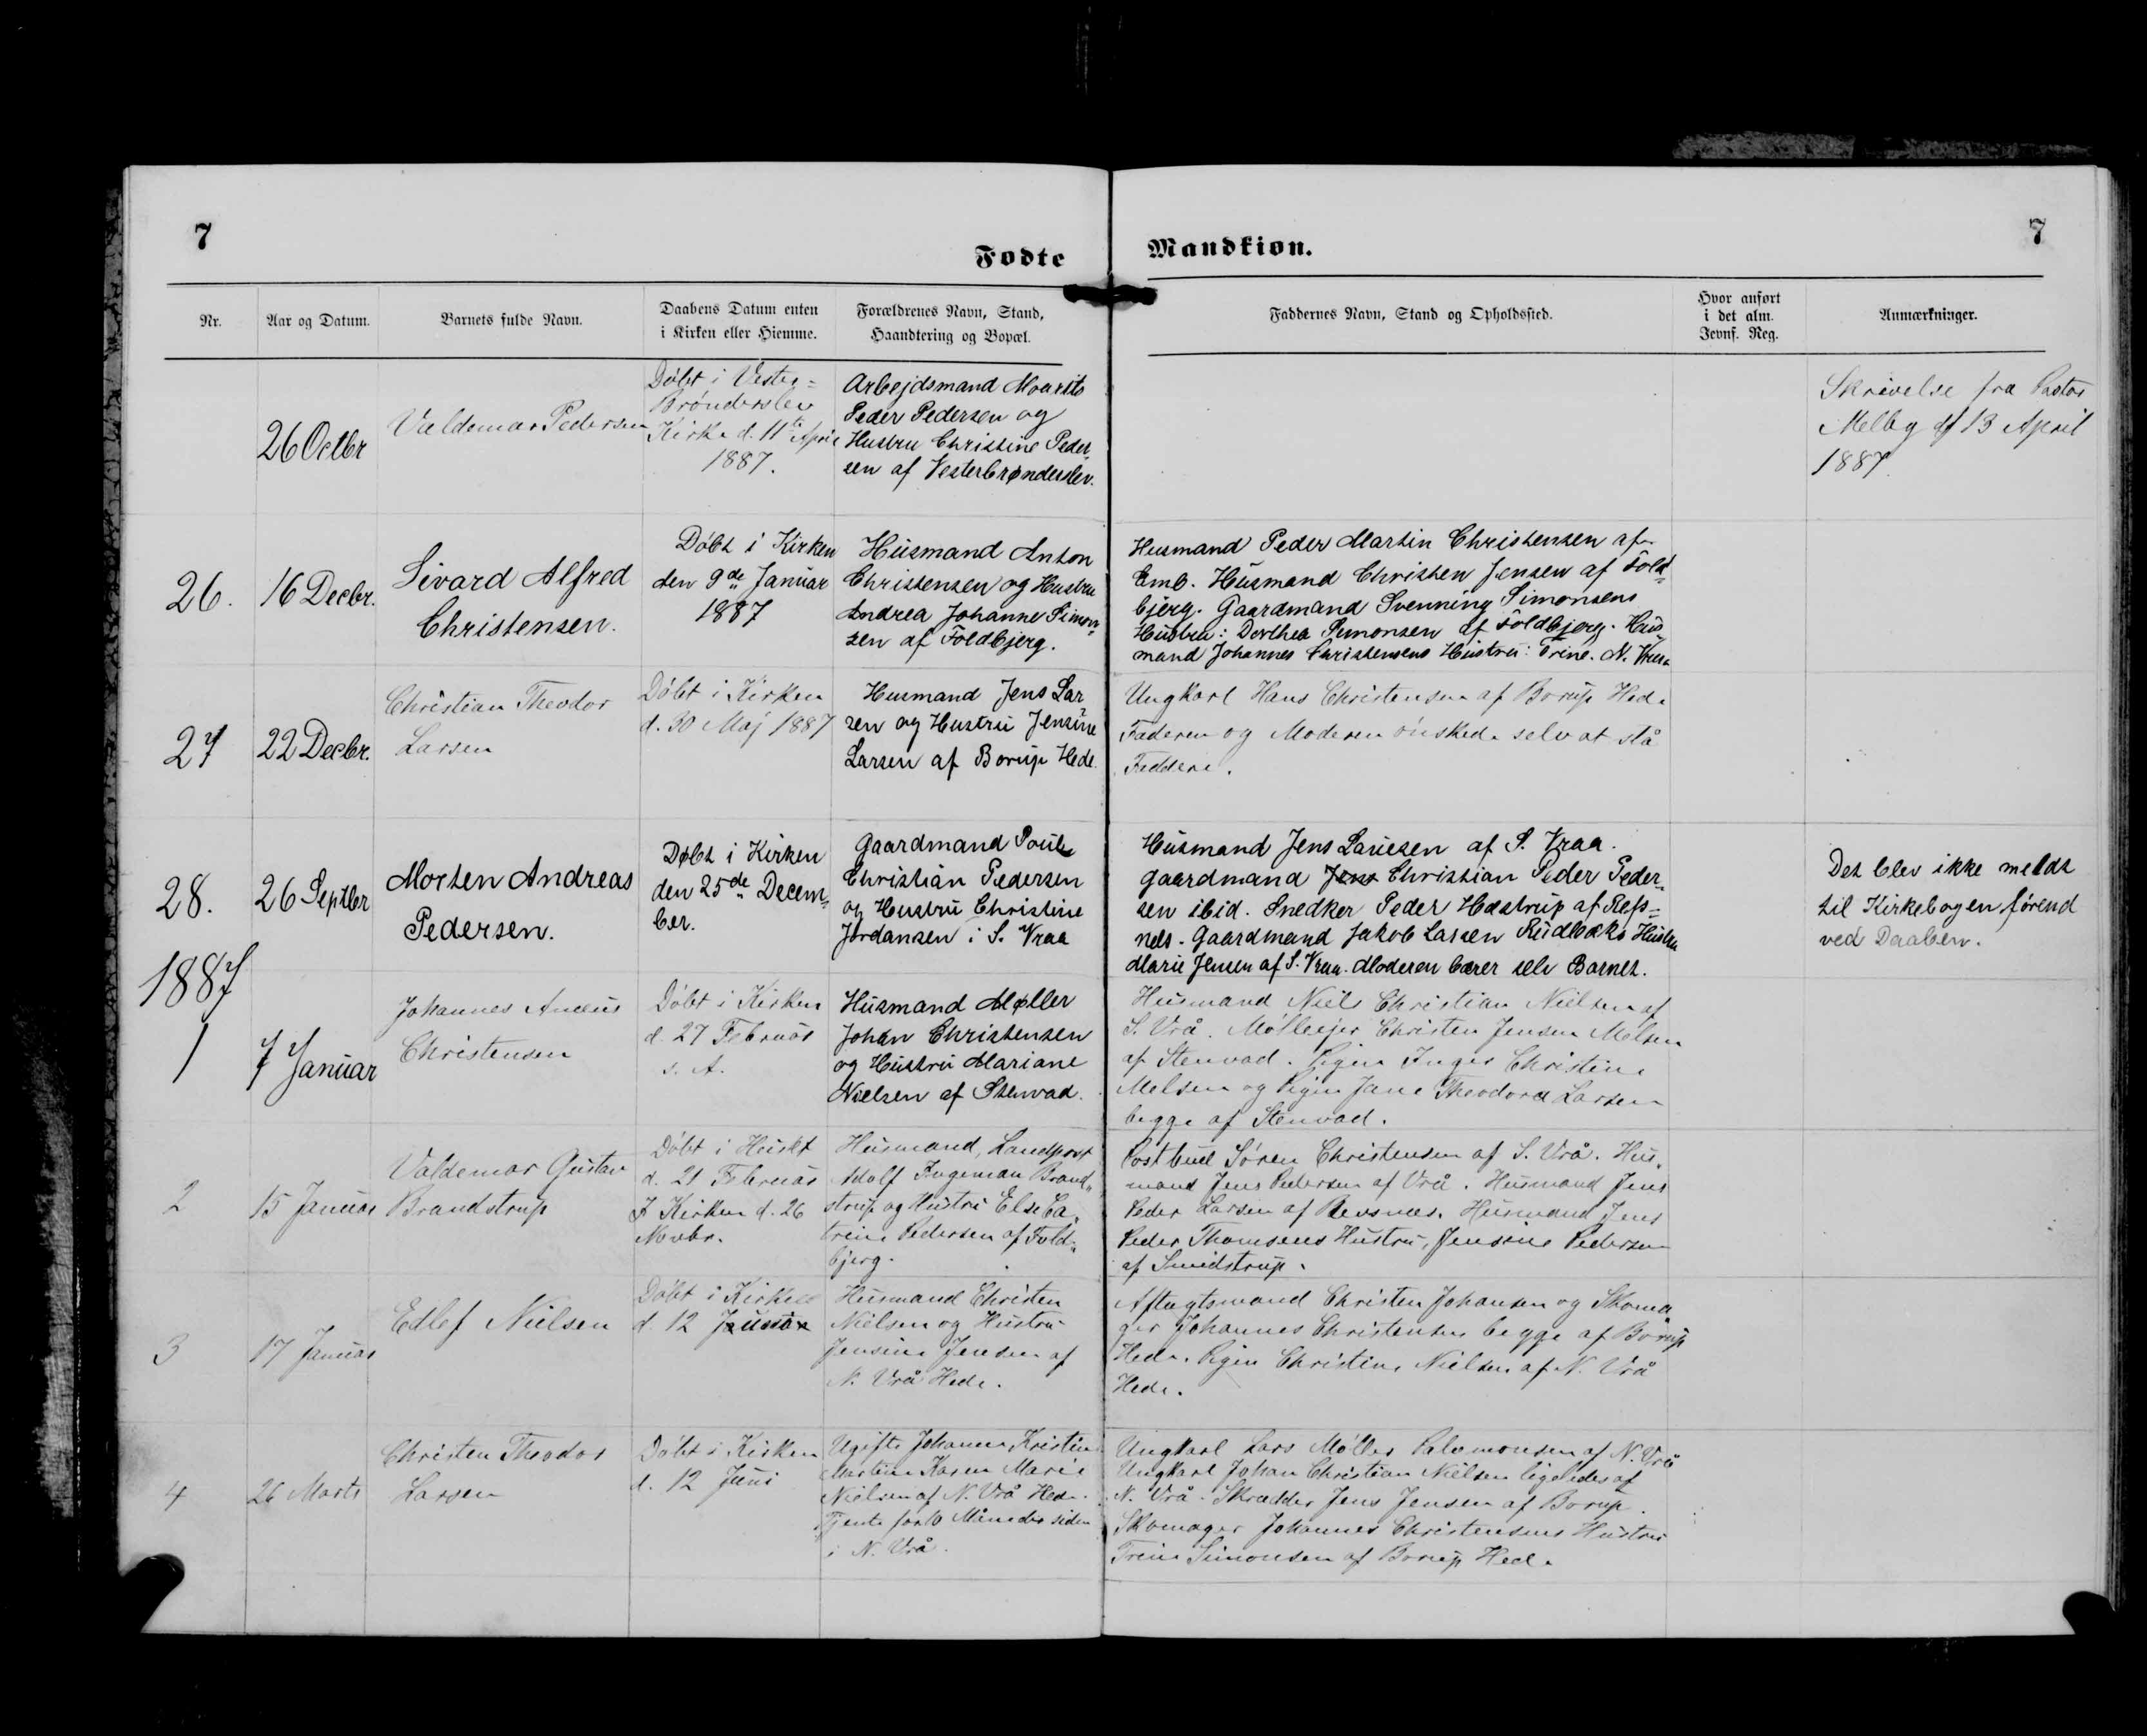 7
7
Fødte
Mandkiøn.
Nr.
Aar og Datum.
Barnets fulde Navn.
Daabens Datum enten
i Kirken eller Hiemme.
Forældrenes Navn, Stand,
Haandtering og Bopæl.
Faddernes Navn, Stand og Opholdssted.
Hvor anført
i det alm.
Jevnf. Reg.
Anmærkninger.
26 Octbr
Valdemar Pedersen
Døbt i Vester=
Brønderslev
Kirke d. 11te April
1887.
Arbejdsmand Mourits
Peder Pedersen og
Hustru Christine Peder„
sen af Vesterbrønderslev.
Skrivelse fra Pastor
Melby af 13 April
1887
26.
16 Decbr.
Sivard Alfred
Christensen.
Døbt i Kirken
den 9de Januar
1887
Husmand Anton
Christensen og Hustru
Andrea Johanne Simon„
sen af Foldbjerg.
Husmand Peder Martin Christensen af
Emb. Husmand Christen Jensen af Fold=
bjerg. Gaardmand Svenning Simonsens
Hustru: Dorthea Simonsen af Foldbjerg. Hus„
mand Johannes Christensens Hustru: Trine. N. Vraa
27
22 Decbr.
Christian Theodor
Larsen
Døbt i Kirken
d. 30 Maj 1887
Husmand Jens Lar„
sen og Hustru Jensine
Larsen af Borup Hede.
Ungkarl Hans Christensen af Borup Hede
Faderen og Moderen ønskede selv at stå
Faddere.
28.
26 Septbr
Morten Andreas
Pedersen.
Døbt i Kirken
den 25de Decem„
ber.
Gaardmand Poul
Christian Pedersen
og Hustru Christine
Jordansen i S. Vraa
Husmand Jens Lauesen af S. Vraa.
Gaardmand Jens Christian Peder Peder„
sen ibid. Snedker Peder Hæstrup af Refs=
næs. Gaardmand Jakob Lassen Rudbæks Hustru
Marie Jensen af S. Vraa. Moderen bærer selv Barnet.
Det blev ikke meldt
til Kirkebogen førend
ved Daaben.
1887
1
7 Januar
Johannes Aneus
Christensen
Døbt i Kirken
d. 27 Februar
s. A.
Husmand Møller
Johan Christensen
og Hustru Mariane
Nielsen af Stenvad.
Husmand Niels Christian Nielsen af
S. Vrå. Mølleejer Christen Jensen Melsen
af Stenvad. Pigen Inger Christine
Melsen og Pigen Jane Theodora Larsen
begge af Stenvad.
2
15 Januar
Valdemar Gustav
Brandstrup
Døbt i Huset
d. 21 Februar
I Kirken d. 26
Novbr.
Husmand, Landpost
Adolf Ingeman Brand„
strup og Hustru Else Ca„
trine Pedersen af Fold„
bjerg.
Postbud Søren Christensen af S. Vrå. Hus„
mand Jens Pedersen af Vrå. Husmand Jens
Peder Larsen af Revsnæs. Husmand Jens
Peder Thomsens Hustru, Jensine Pedersen
af Smidstrup.
3
17 Januar
Edlef Nielsen
Døbt i Kirken
d. 12
Husmand Christen
Nielsen og Hustru
Jensine Jensen af
N. Vrå Hede.
Aftægtsmand Christen Johansen og Skoma„
ger Johannes Christensen begge af Borup
Hede. Pigen Christine Nielsen af N. Vrå
Hede.
4
26 Marts
Christen Theodor
Larsen
Døbt i Kirken
d. 12 Juni
Ugifte Johanne Kristine
Martine Karen Marie
Nielsen af N. Vrå Hede.
Tjente for 10 Måneder siden
i N. Vrå.
Ungkarl Lars Møller Salomonsen af N. Vrå
Ungkarl Johan Christian Nielsen ligeledes af
N. Vrå. Skrædder Jens Jensen af Borup.
Skomager Johannes Christensens Hustru
Trine Simonsen af Borup Hede